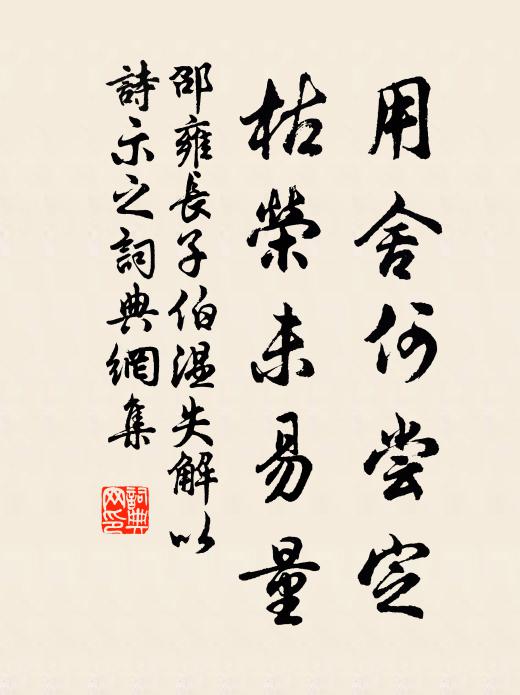 用舍何尝定
枯榮未易量
邵雍長子伯温失解以
詩示之詞典網集
詞典
网印